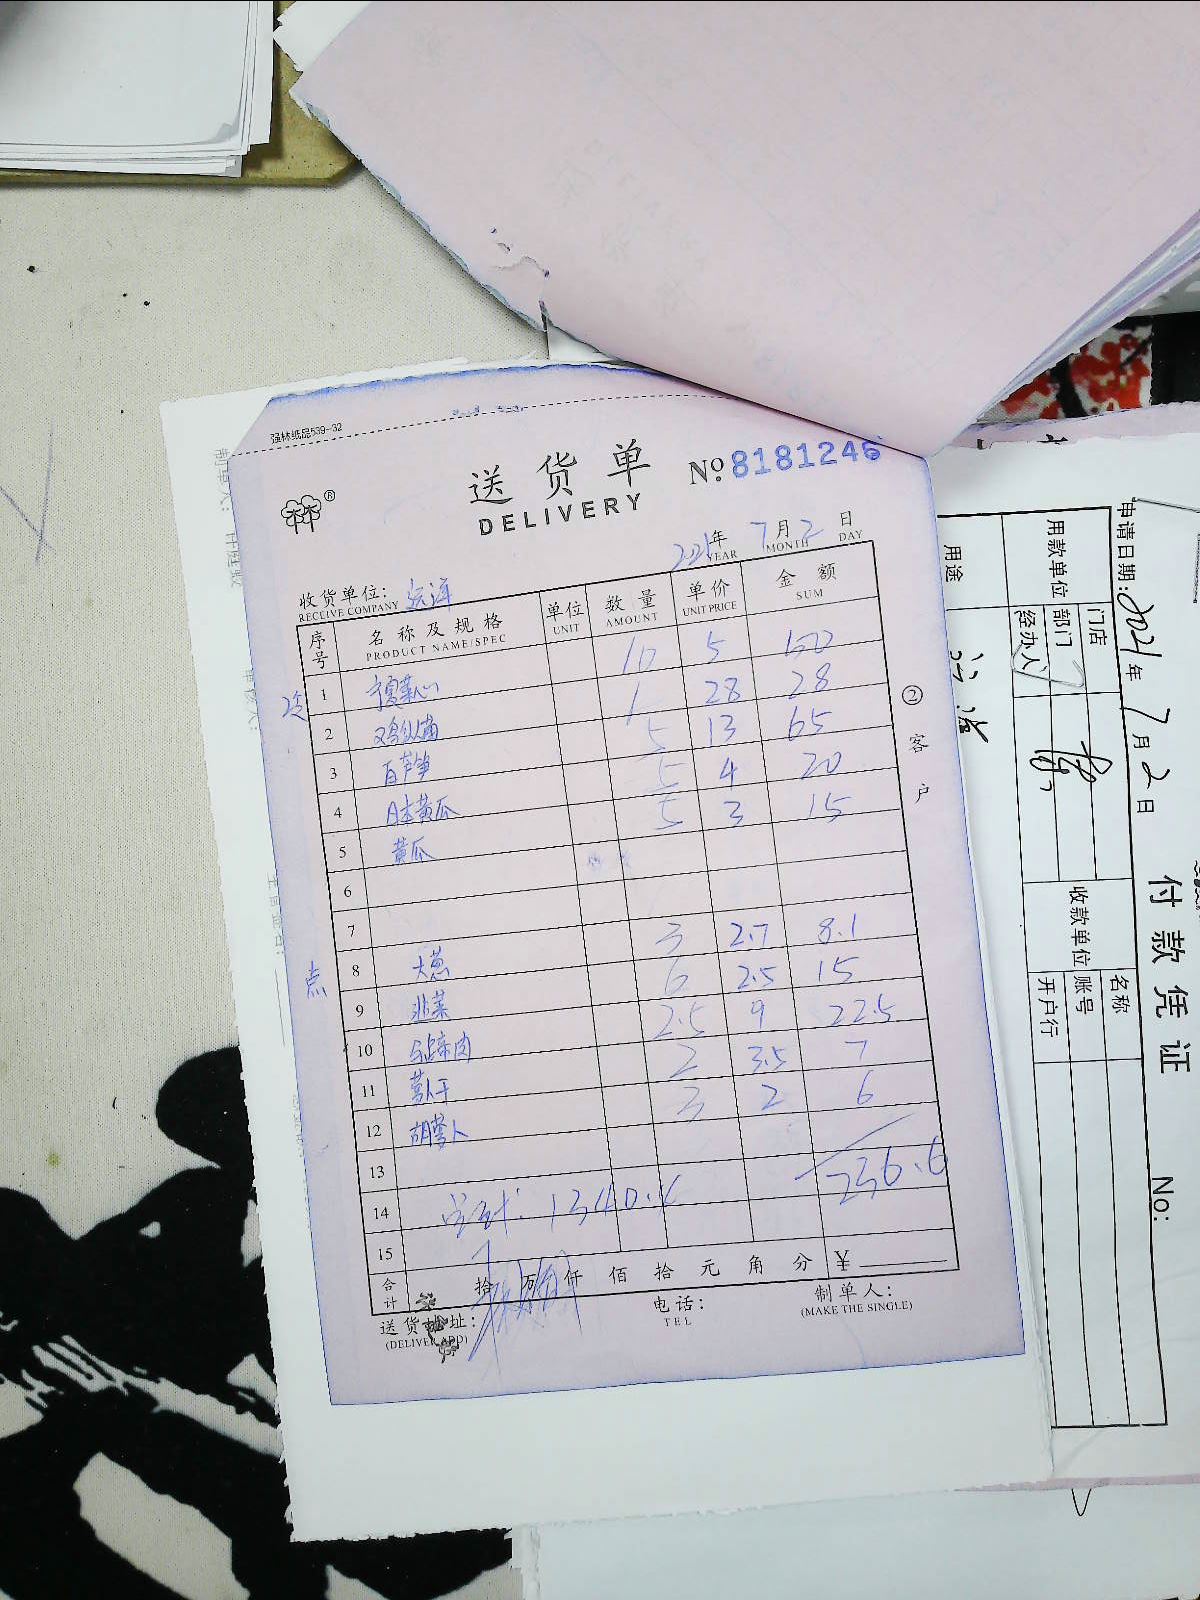 强林纸品539-32
送货单
DELIVERY
No. 8181246
2021年 7月 2日
YEAR MONTH DAY
收货单位:
RECEIVE COMPANY
序号 名称及规格 单位 数量 单价 金额
PRODUCT NAME/SPEC UNIT AMOUNT UNIT PRICE SUM
1 10 5 50
2 1 28 28
3 白芦笋 5 13 65
4 日本黄瓜 5 4 20
5 黄瓜 5 3 15
6
7
点
8 大葱 3 2.7 8.1
9 韭菜 6 2.5 15
10 马蹄肉 2.5 9 22.5
11 萝卜干 2 3.5 7
12 胡萝卜 3 2 6
13
14 236.6
15
合计 拾 万 仟 佰 拾 元 角 分 ¥
送货地址: 电话: 制单人:
(DELIVER ADD) TEL (MAKE THE SINGLE)
②客户
付款凭证
No:
申请日期: 2021年 7月 2日
用款单位
门店
部门
经办人
收款单位
名称
账号
开户行
用途